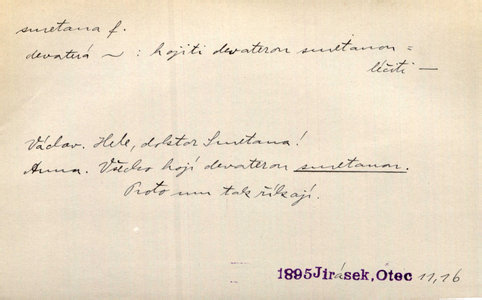 smetana f.
devaterá ~ : hojiti devaterou smetanou =
léčiti —
Václav. Hele, doktor Smetana!
Anna. Všecko hojí devaterou smetanou.
Proto mu tak říkají.
1895 Jirásek, Otec 11, 16